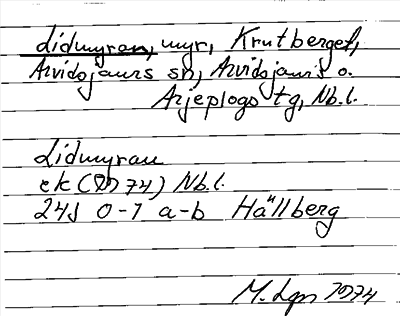 Lidmyran, myr, Krutberget,
Arvidsjaurs sn, Arvidsjaurs o.
Arjeplogs tg, Nb.l.
Lidmyran
ek (1974) Nb.l.
24J 0-1 a-b Hällberg
M. Lgn 1974